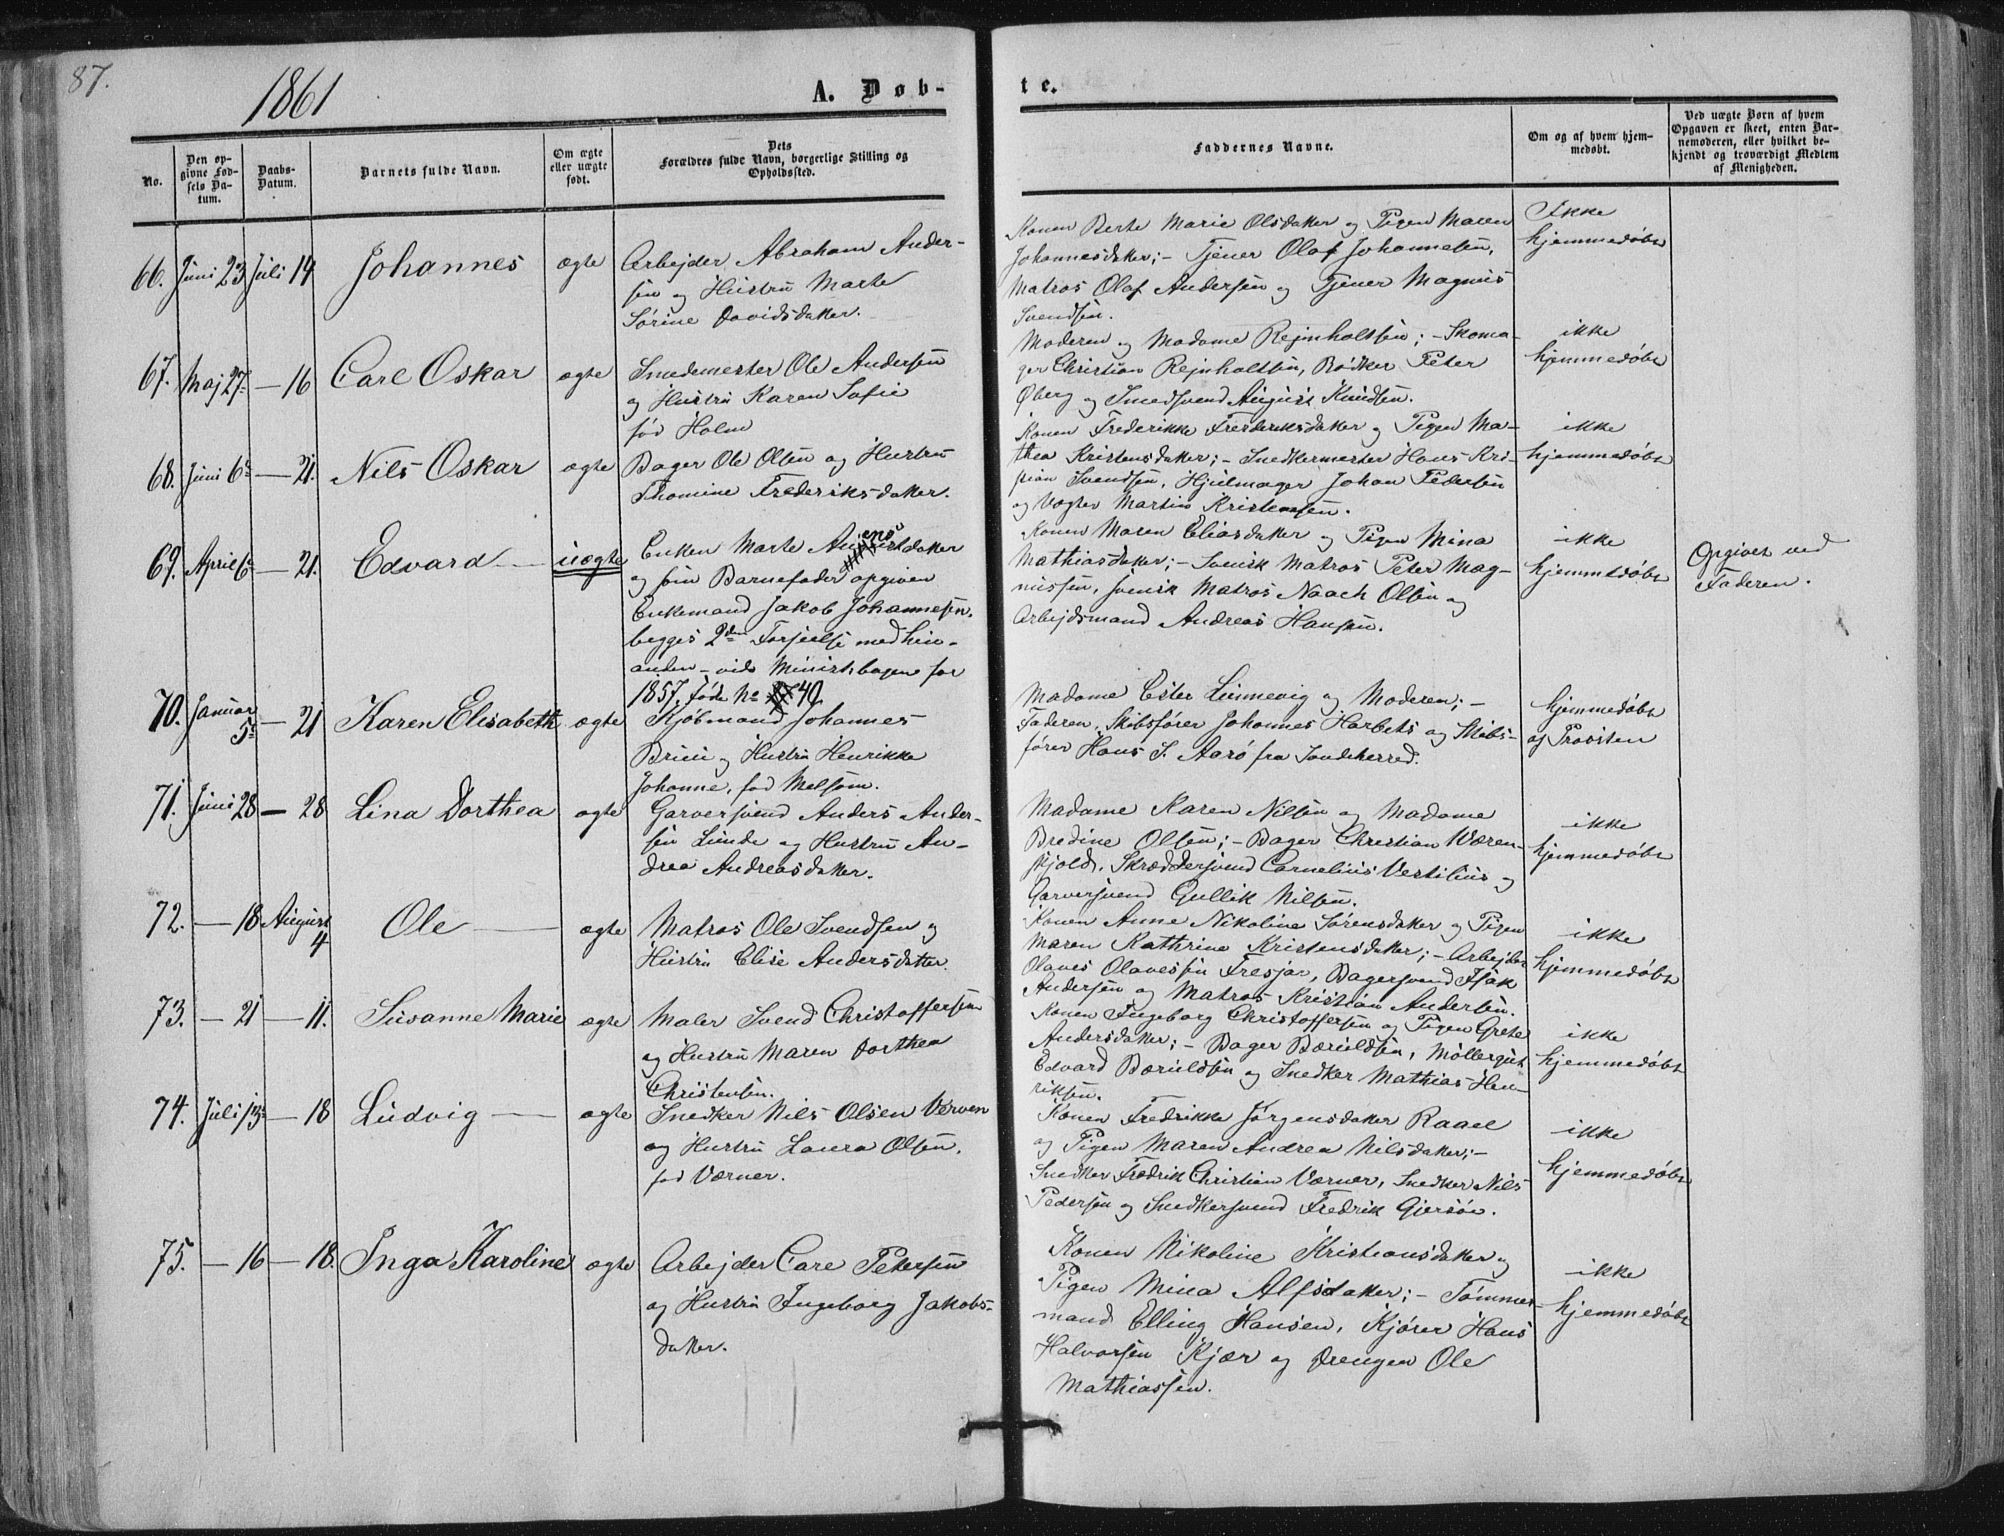 87.
1861
A. Døb-
te.
No.
Den op-
givne Fød-
sels Da-
tum.
Daabs-
Datum.
Barnets fulde Navn.
Om ægte
eller uægte
født.
Dets
Forældres fulde Navn, borgerlige Stilling og
Opholdssted.
Faddernes Navne.
Om og af hvem hjem-
medøbt.
Ved uægte Børn af hvem
Opgaven er skeet, enten Bar-
nemoderen, eller hvilket be-
kjendt og troværdigt Medlem
af Menigheden.
66. Juni 23 Juli 14 Johannes ægte
Arbejder Abraham Ander-
sen og Hustru Marte
Sørine Davidsdatter.
Konen Berte Marie Olsdatter og Pigen Maren
Johannesdatter; - Tjener Olaf Johannesen,
Matros Olaf Andersen og Tjener Magnus
Svendsen.
Ikke
hjemmedøbt
67. Maj 27 - 16 Carl Oskar ægte
Smedemester Ole Andersen
og Hustru Karen Sofie
fød Holm
Moderen og Madame Rejnholtsen; - Skoma-
ger Christian Rejnholtsen, Bødker Peter
Øberg og Smedsvend August Knudsen.
ikke
hjemmedøbt
68. Juni 6 - 21. Nils Oskar ægte
Bager Ole Olsen og Hustru
Thomine Frederiksdatter.
Konen Frederikke Frederiksdatter og Pigen Ma-
thea Kristensdatter; - Snedkermester Hans Kri-
stian Svendsen, Hjulmager Johan Pedersen
og Vægter Martin Kristensen.
ikke
hjemmedøbt
69. April 6 - 21. Edvard - uægte
Enken Marte datter
og som Barnefader opgiven
Enkemand Jakob Johannesen.
begges 2den Forseelse med hin-
anden - vide Ministbogen for
1857, føde No 40
Konen Maren Eliasdatter og Pigen Mina
Mathiasdatter; - svensk Matros Peter Mag-
nussen, svensk Matros Naach Olsen og
Arbejdsmand Andreas Hansen.
ikke
hjemmedøbt
Opgivet ved
Faderen.
70. Januar 5 - 21 Karen Elisabeth ægte
Kjøbmand Johannes
Bruu og Hustru Henrikke
Johanne, fød Melsom.
Madame Ester Linnevig og Moderen; -
Faderen, Skibsfører Johannes Harbets og Skibs-
fører Hans S. Aarø fra Sandeherred.
hjemmedøbt
af Provsten
71. Juni 28 - 28 Lina Dorthea ægte
Garversvend Anders Ander-
sen Lunde og Hustru An-
drea Andreasdatter.
Madame Karen Nilsen og Madame
Bredine Olsen; - Bager Christian Væren-
skjold, Skræddersvend Cornelius Vestilius og
Garversvend Gullik Nilsen.
ikke
hjemmedøbt
72. - 18 August 4 Ole - ægte
Matros Ole Svendsen og
Hustru Elise Andersdatter.
Konen Anne Nikoline Sørensdatter og Pigen
Maren Kathrine Kristensdatter; - Arbejder
Olaves Olavessen Fresjar, Bagersvend Isak
Andersen og Matros Kristian Andersen.
ikke
hjemmedøbt
73. - 21 - 11. Susanne Marie ægte
Maler Svend Christoffersen
og Hustru Maren Dorthea
Christensen.
Konen Ingeborg Christoffersen og Pigen Grete
Andersdatter; - Bager Bæruldsen, Møllergut
Edvard Bæruldsen og Snedker Mathias Hen-
riksen.
ikke
hjemmedøbt
74. Juli 13 - 18 Ludvig - ægte
Snedker Nils Olsen Verven
og Hustru Laura Olsen,
fød Værner.
Konen Fredrikke Jørgensdatter Raael
og Pigen Maren Andrea Nilsdatter; -
Snedker Fredrik Christian Værner, Snedker Nils
Pedersen og Snedkersvend Fredrik Gjersøe.
ikke
hjemmedøbt
75. - 16 - 18. Inga Karoline ægte
Arbejder Carl Petersen
og Hustru Ingeborg Jakobs-
datter.
Konen Nikoline Kristiansdatter og
Pigen Mina Alfsdatter; - Tømmer-
mand Elling Hansen, Kjører Hans
Halvorsen Kjær og Drengen Ole
Mathiassen.
ikke
hjemmedøbt